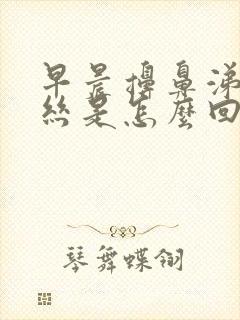 早晨擤鼻涕
絲是怎麼回
琴舞蝶翎